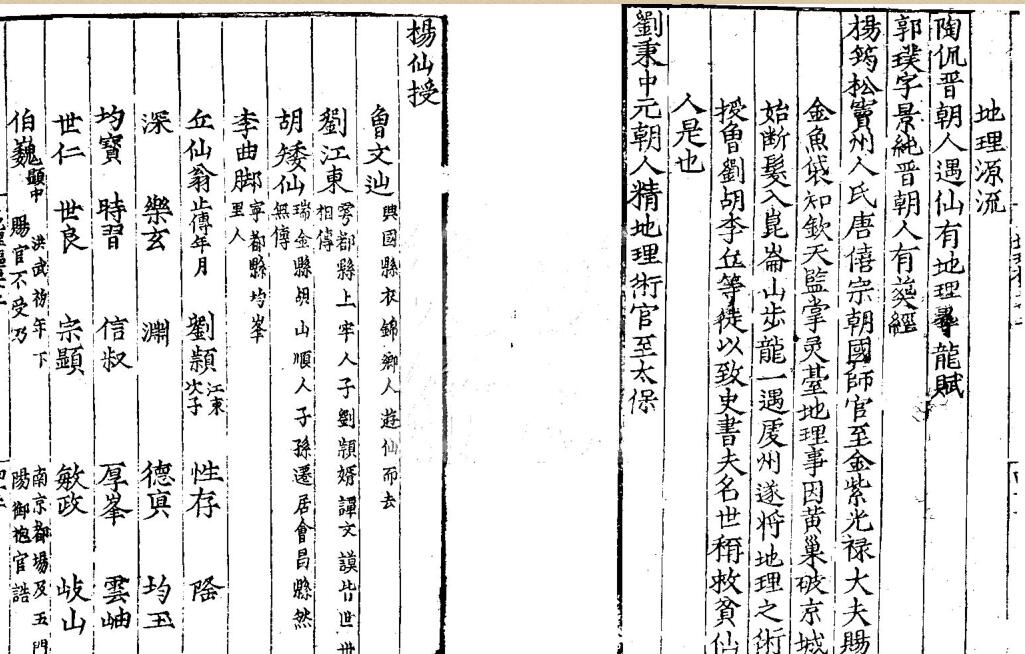 地理源流
陶侃晉朝人遇仙有地理尋龍賦
郭璞字景純晉朝人有葬經
楊筠松竇州人氏唐僖宗朝國師官至金紫光祿大夫賜
金魚袋知欽天監掌灵䑓地理事因黄巢破京城
始断髮入崑崙山步龍一遇虔州遂將地理之術
授魯劉胡李丘等徒以致史書夫名世稱救貧仙
人是也
劉秉中元朝人精地理術官至太保
楊仙授
魯文辿 興國縣衣錦鄉人遊仙而去
劉江東 雩都縣上牢人子劉頴婿譚文謨皆世世相傳
胡矮仙 瑞金縣胡山順人子孫遷居會昌縣然無傳
李曲脚 寧都縣均峯里人
丘仙翁 止傳年月 劉頴 江東次子 性存 隆
深 樂玄 淵 德真 均玉
均寳 時習 信叔 厚峯 雲岫
世仁 世良 宗顯 敏政 岐山
伯巍 顯中 洪武初年下 南京都場及五門
賜官不受乃 陽御袍官誥